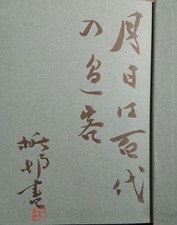 月日は百代
の過客
楸邨書